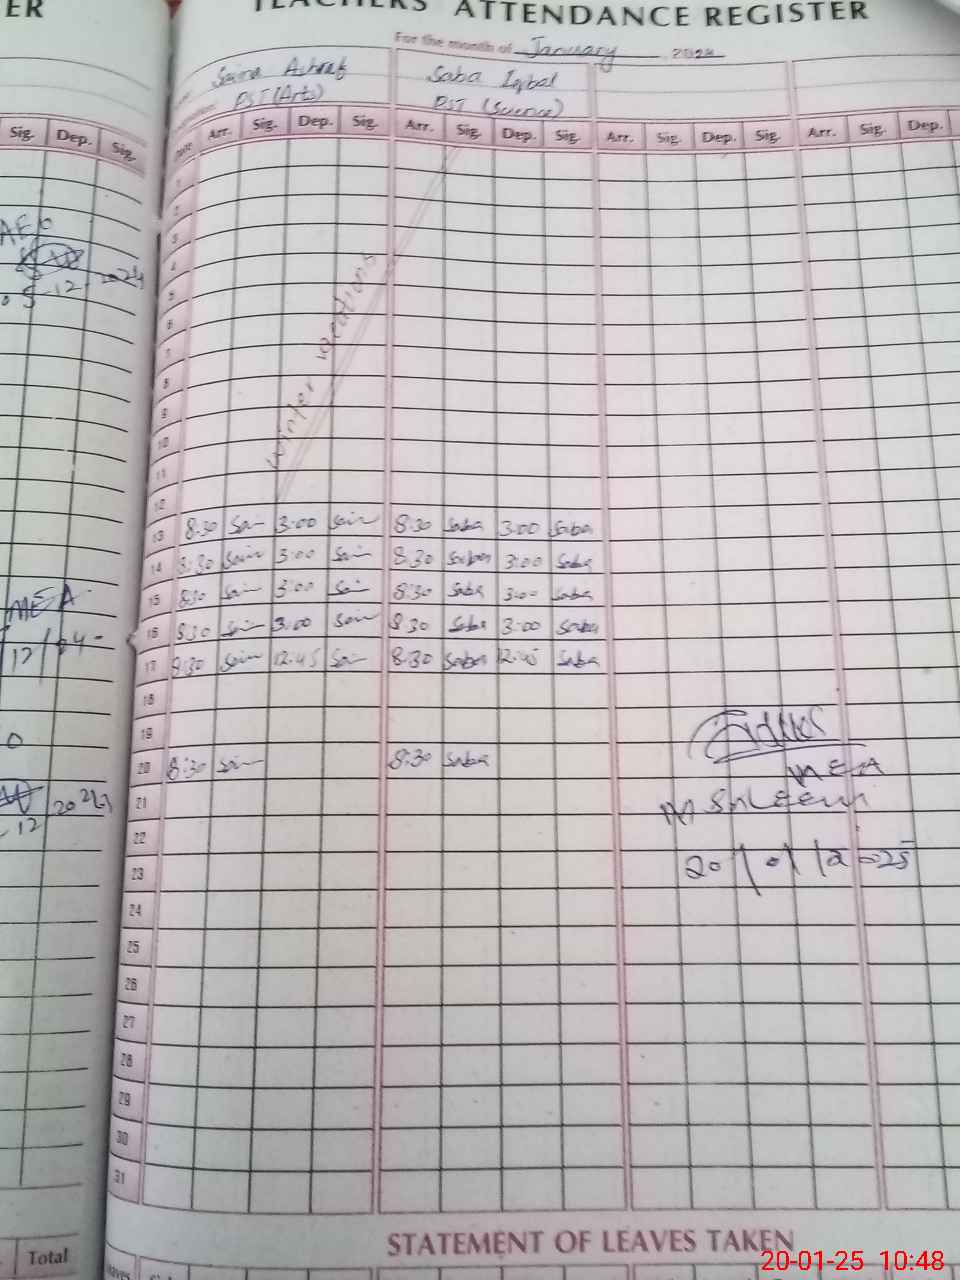 ER
TEACHERS' ATTENDANCE REGISTER
For the month of January 2024
Saira Ashraf Saba Iqbal
PST (Arts) PST (Science)
Sig. Dep. Sig.
Date Arr. Sig. Dep. Sig. Arr. Sig. Dep. Sig. Arr. Sig. Dep. Sig. Arr. Sig. Dep.
1
2
3
4
5
6
7
8
9
10
11
12
winter vacations
13 8:30 Sair 3:00 Sair 8:30 Saba 3:00 Saba
14 8:30 Sair 3:00 Sair 8:30 Saba 3:00 Saba
15 8:30 Sair 3:00 Sair 8:30 Saba 3:00 Saba
16 8:30 Sair 3:00 Sair 8:30 Saba 3:00 Saba
17 8:30 Sair 12:45 Sair 8:30 Saba 12:45 Saba
18
19
20 8:30 Sair 8:30 Saba
21
22
23
24
25
26
27
28
29
30
31
MEA
M Saleem
20/01/2025
AEO
05-12-2024
MEA
12/24
12 2024
Total
STATEMENT OF LEAVES TAKEN
20-01-25 10:48